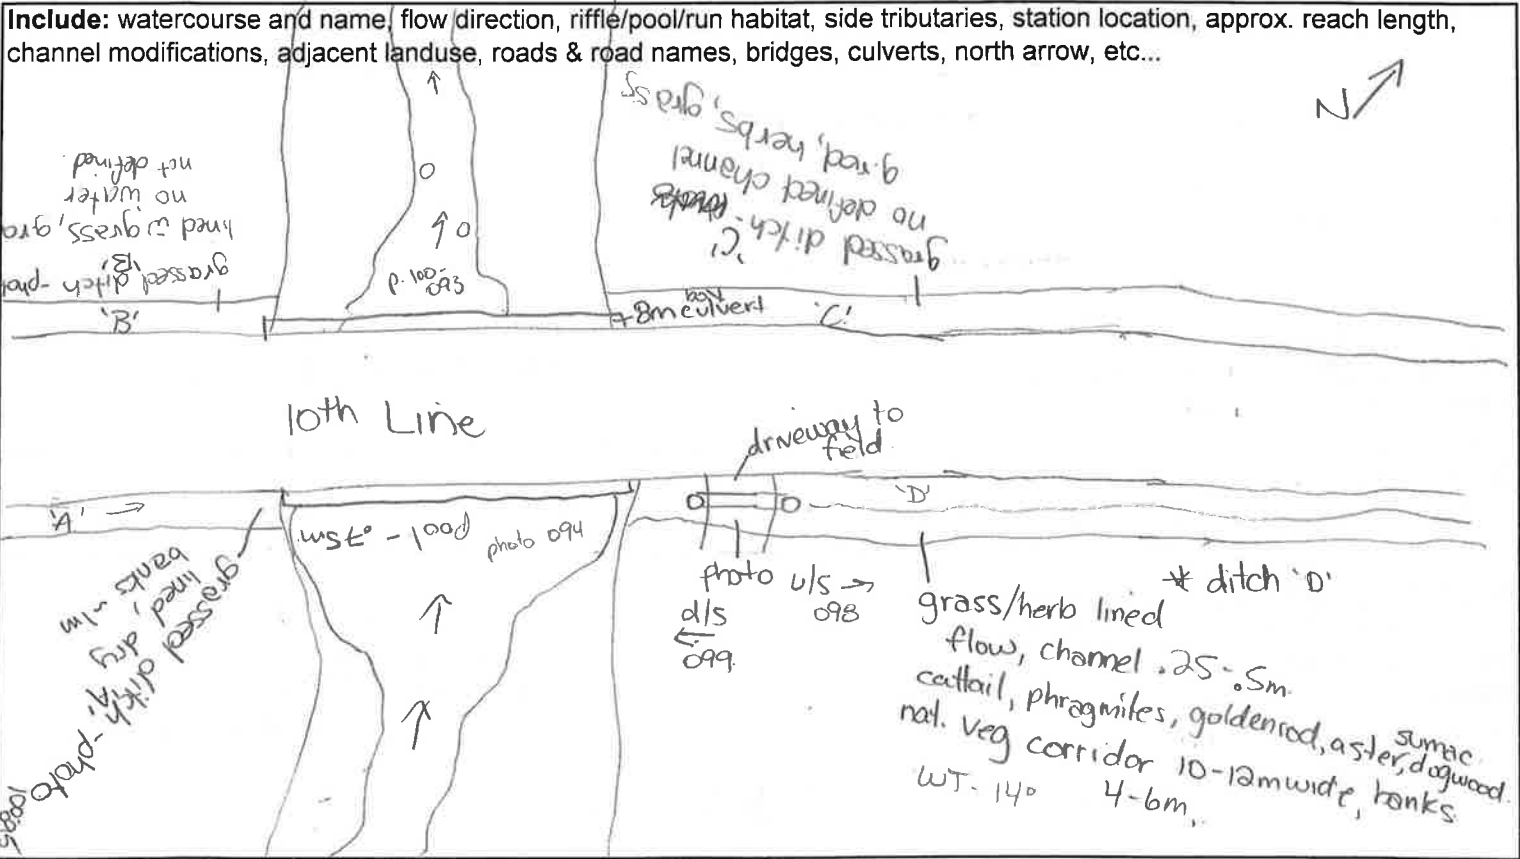 Include: watercourse and name, flow direction, riffle/pool/run habitat, side tributaries, station location, approx. reach length,
channel modifications, adjacent landuse, roads & road names, bridges, culverts, north arrow, etc...
N
grassed ditch -
'B'
lined w grass,
no water
not defined.
p. 100-
093
'C'
grassed ditch -
no defined channel
g.rod, herbs, grass
'B'
box
8m culvert
'C'
10th Line
driveway to
field
'A'
pool - .75m
photo 094
'D'
grassed ditch - photo
'A'
lined, dry
banks ~1m
photo u/s
098
d/s
099.
* ditch 'D'
grass/herb lined
flow, channel .25-.5m.
cattail, phragmites, goldenrod, aster, dogwood.
sumac
nat. veg corridor 10-12m wide, banks
4-6m,
WT- 14°